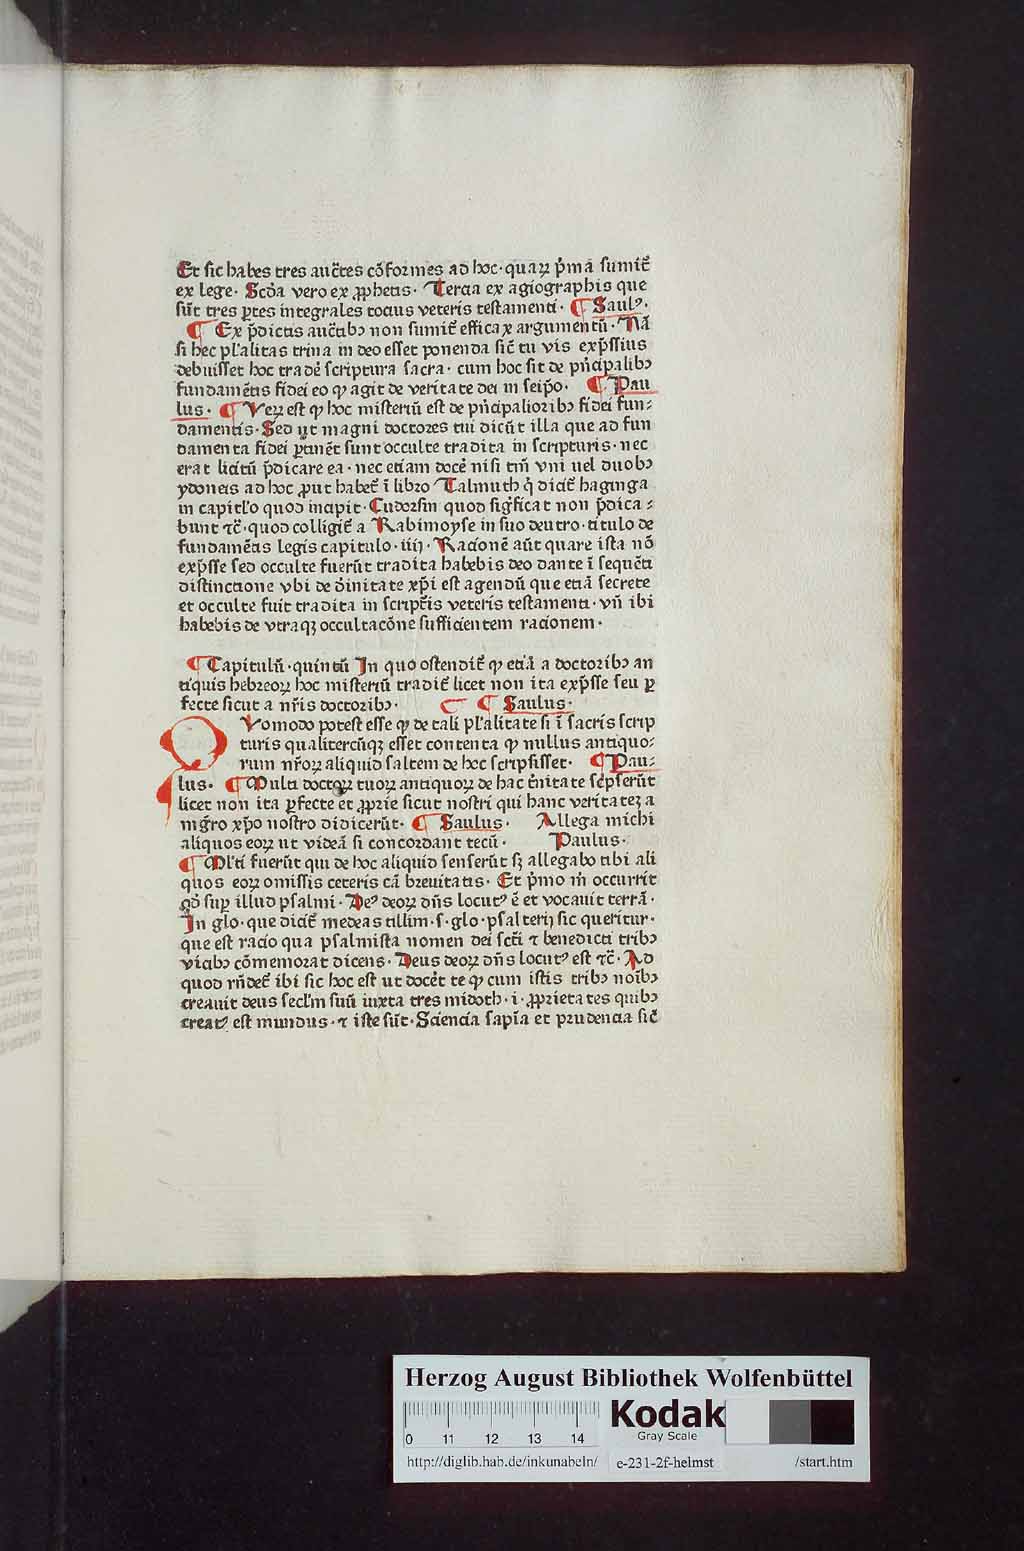 Et sic habes tres auct̄es cōformes ad hoc · quaꝝ p̄ma sumit᷑
ex lege · Scd̄a vero ex ꝓphetis · Tercia ex agiographis que
sūt tres ꝑtes integrales tocius veteris testamenti · ¶ Saulꝰ ·
¶ Ex p̄dictis auct̄ibꝫ non sumit᷑ efficax argumentū · Nā
si hec pl'alitas trina in deo esset ponenda sic̄ tu vis exp̄ssius
debuisset hoc tradē scriptura sacra · cum hoc sit de pn̄cipalibꝫ
fundamētis fidei eo ꝙ agit de veritate dei in seip̄o · ¶ Pau
lus · ¶ Veꝝ est ꝙ hoc misteriū est de pn̄cipalioribꝫ fidei fun⸗
damentis · Sed ut magni doctores tui dicūt illa que ad fun
damenta fidei ꝑtinēt sunt occulte tradita in scripturis · nec
erat licitū p̄dicare ea · nec etiam docē nisi tm̄ vni uel duobꝫ
ydoneis ad hoc ꝓut habet᷑ ī libro Talmuth q̄ dicit᷑ haginga
in capitl'o quod incipit · Cudorsin quod siḡficat non p̄dica⸗
bunt ⁊c̄ · quod colligit᷑ a Rabimoyse in suo deutro · titulo de
fundamētis legis capitulo · iiij · Racionē aūt quare ista nō
exp̄sse sed occulte fuerūt tradita habebis deo dante ī sequēti
distinctione vbi de diīnitate xp̄i est agendū que etiā secrete
et occulte fuit tradita in script̄is veteris testamenti · vn̄ ibi
habebis de vtraqꝫ occultacōne sufficientem racionem ·
¶ Capitulū · quintū In quo ostendit᷑ ꝙ etiā a doctoribꝫ an
tiquis hebreoꝝ hoc misteriū tradit᷑ licet non ita exp̄sse seu ꝑ
fecte sicut a nr̄is doctoribꝫ · ¶ Saulus ·
QVomodo potest esse ꝙ de tali pl'alitate si ī sacris scrip
turis qualitercūqꝫ esset contenta ꝙ nullus antiquo⸗
rum nr̄oꝝ aliquid saltem de hoc scripsisset · ¶ Pau⸗
lus · ¶ Multi doctoꝝ tuoꝝ antiquoꝝ de hac t̄nitate sc̄pserūt
licet non ita ꝑfecte et ꝓprie sicut nostri qui hanc veritateꝫ a
mgr̄o xp̄o nostro didicerūt · ¶ Saulus · Allega michi
aliquos eoꝝ ut videā si concordant tecū · Paulus ·
¶ Ml̄ti fuerūt qui de hoc aliquid senserūt sꝫ allegabo tibi ali
quos eoꝝ omissis ceteris cā breuitatis · Et p̄mo m̄ occurrit
qd̄ suꝑ illud psalmi · Deꝰ deoꝝ dn̄s locutꝰ ē et vocauit terrā ·
In glo · que dicit᷑ medeas tillim · s · glo · psalterij sic queritur ·
que est racio qua psalmista nomen dei sct̄i ⁊ benedicti tribꝫ
vicibꝫ cōmemorat dicens · Deus deoꝝ dn̄s locutꝰ est ⁊c̄ · Ad
quod rn̄det᷑ ibi sic hoc est ut docēt te ꝙ cum istis tribꝫ noībꝫ
creauit deus secl'm suū iuxta tres midoth · i · ꝓprietates quibꝫ
creatꝰ est mundus · ⁊ iste sūt · Sciencia sapīa et prudencia sic̄
Herzog August Bibliothek Wolfenbüttel
0 11 12 13 14
Kodak
Gray Scale
http://diglib.hab.de/inkunabeln/ e-231-2f-helmst /start.htm